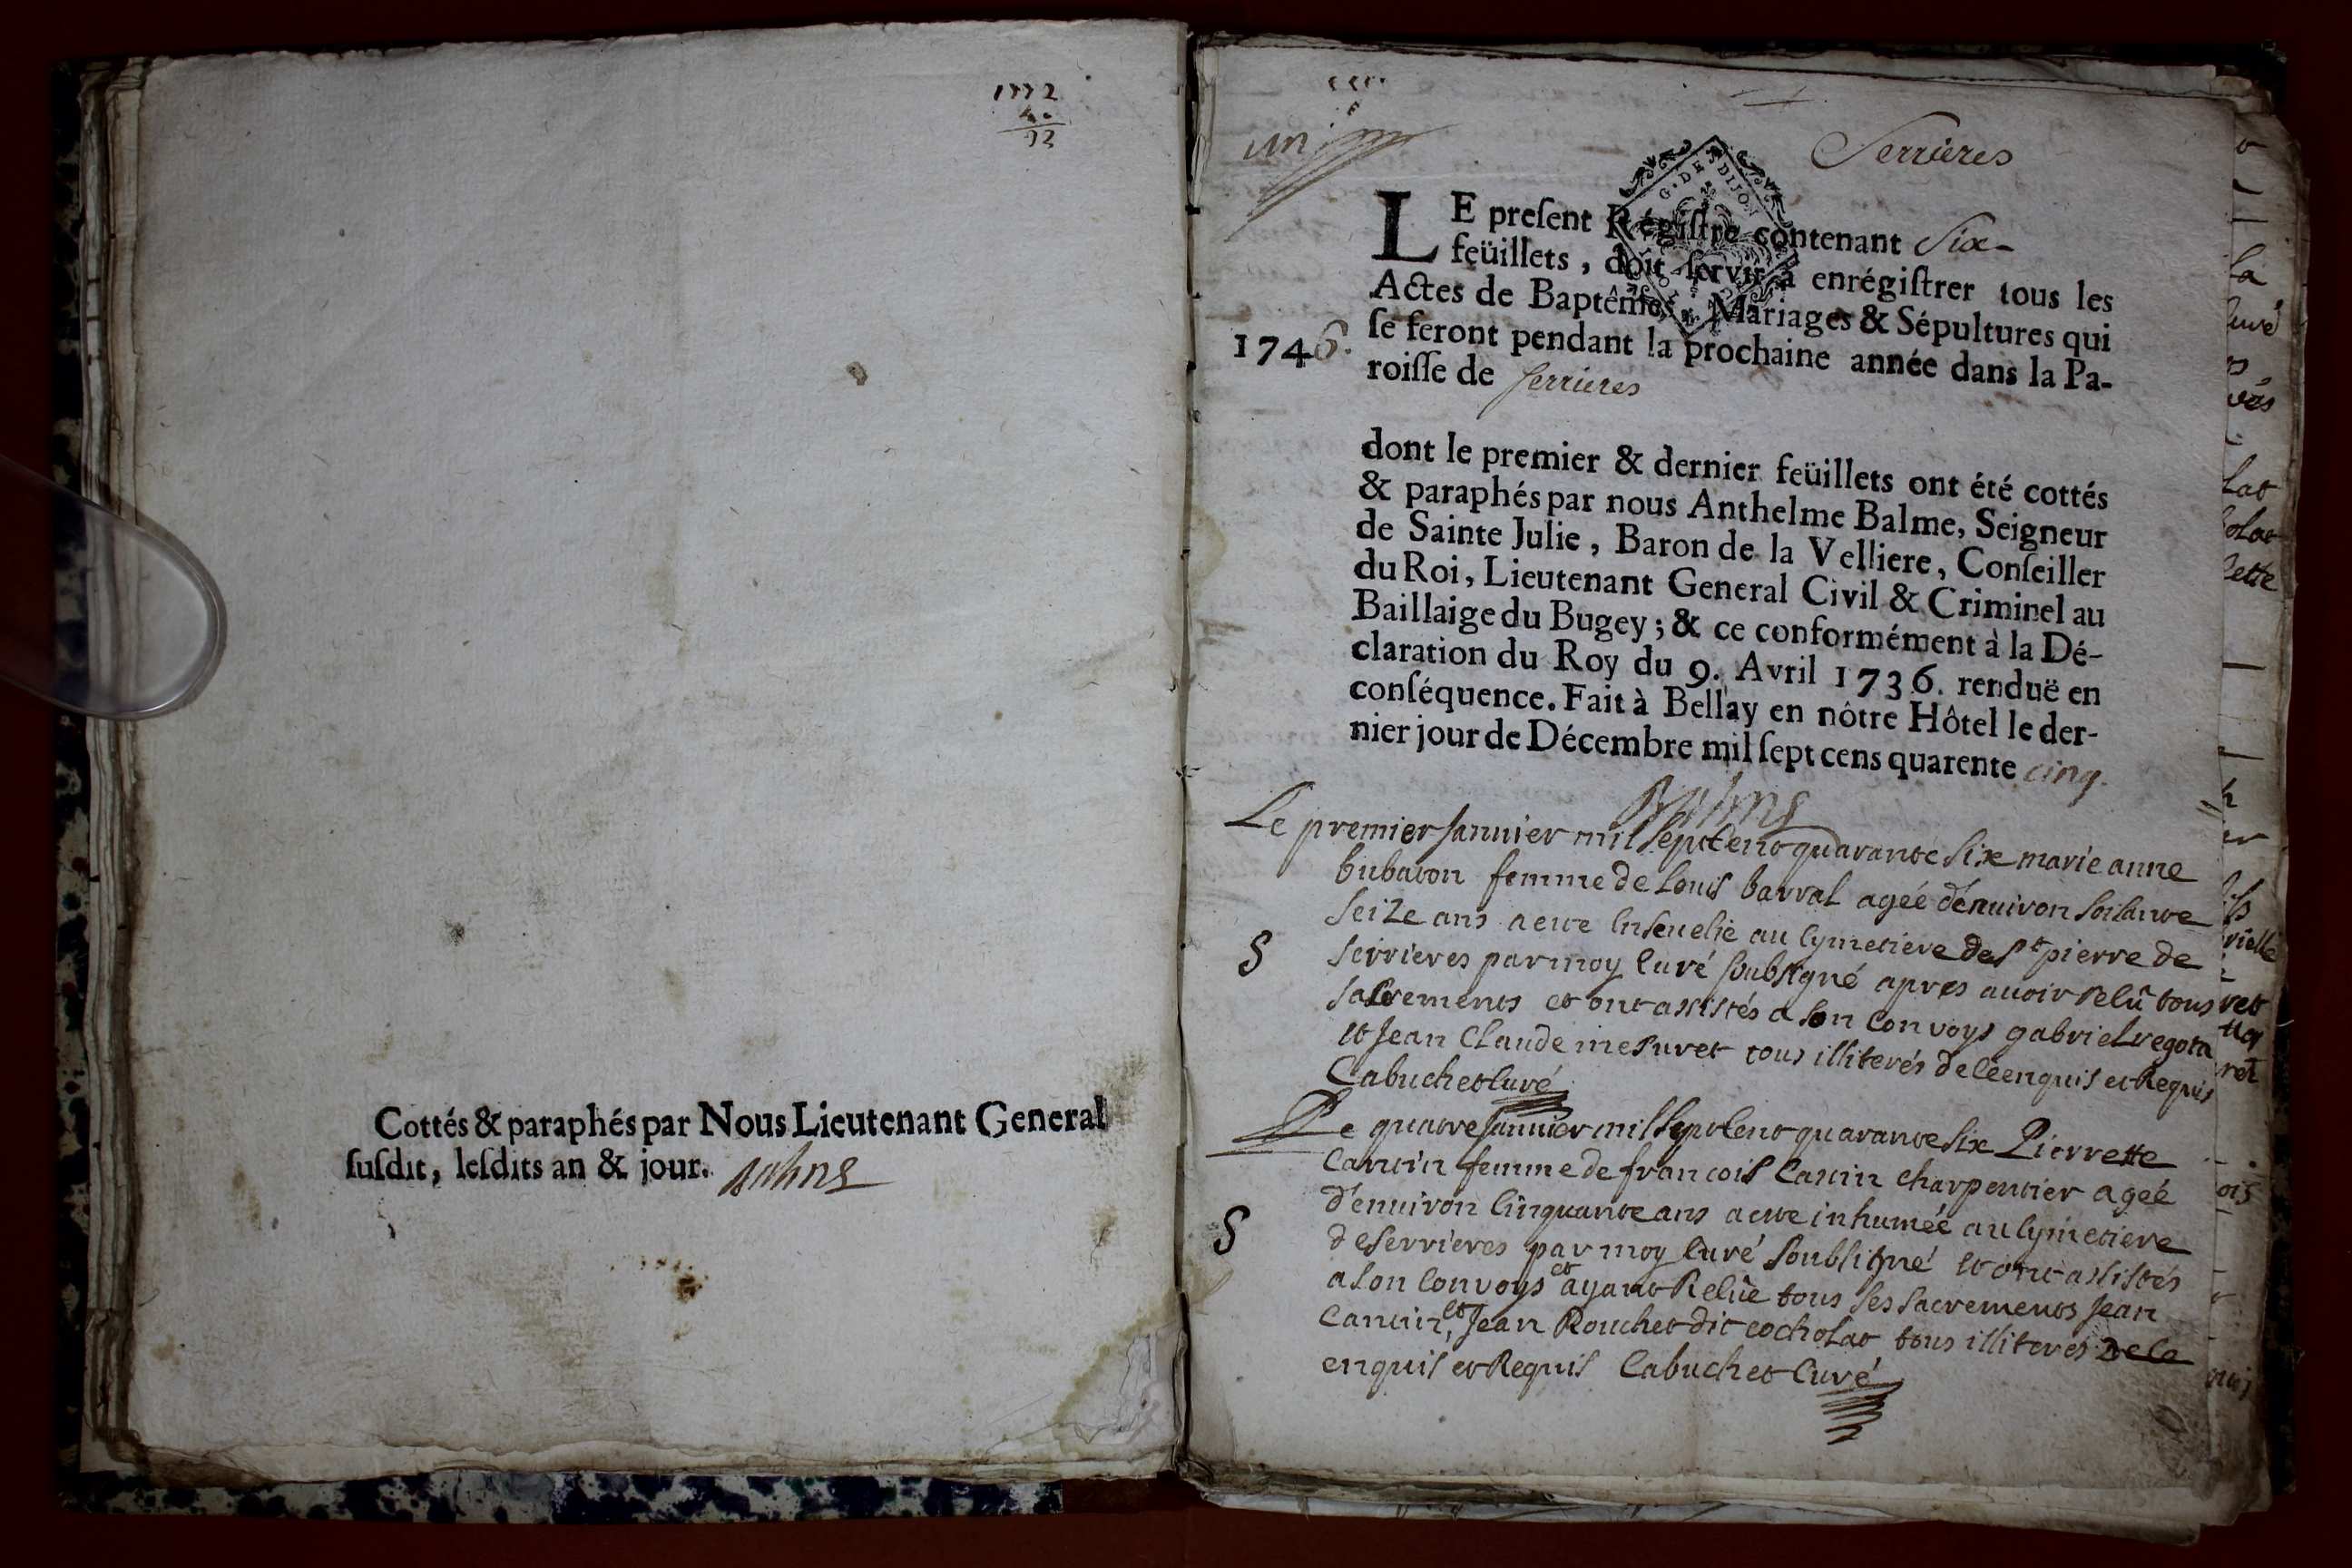 1772
92
Cottés & paraphés par Nous Lieutenant General
susdit, lesdits an & jour. Balme
un
Serrieres
G. DE DIJON
LE present Régistre contenant Six
feüillets, doit servir à enrégistrer tous les
Actes de Baptêmes, Mariages & Sépultures qui
1746. se feront pendant la prochaine année dans la Pa-
roisse de serrieres
dont le premier & dernier feüillets ont été cottés
& paraphés par nous Anthelme Balme, Seigneur
de Sainte Julie, Baron de la Velliere, Conseiller
du Roi, Lieutenant General Civil & Criminel au
Baillaige du Bugey; & ce conformément à la Dé-
claration du Roy du 9. Avril 1736. renduë en
conséquence. Fait à Bellay en nôtre Hôtel le der-
nier jour de Décembre mil sept cens quarente cinq.
Balme
Le premier Janvier mil sept cent quarante six marie anne
bubaton femme de Louis barral agée d'environ soisante
seize ans a ete Enseuelie au Cymetiere de st pierre de
S serrieres par moy Curé soubsigné apres auoir Relû tous
sacrements et ont assistés a son Convoys gabriel regota
et Jean Claude mesuret tous illiterés de Ce enquis et Requis
Cabuchet Curé
Le quatre Janvier mil sept Cent quarante six Pierrette
Cantin femme de francois Cantin charpentier agée
d'enuiron Cinquante ans a ete inhumée au Cymetiere
S de serrieres par moy Curé soubsigné et ont assistés
a son Convoys et ayant Relüe tous ses sacrements Jean
Cantin, et Jean Rouchet dit cocholat tous illiteres De Ce
enquis et Requis Cabuchet Curé